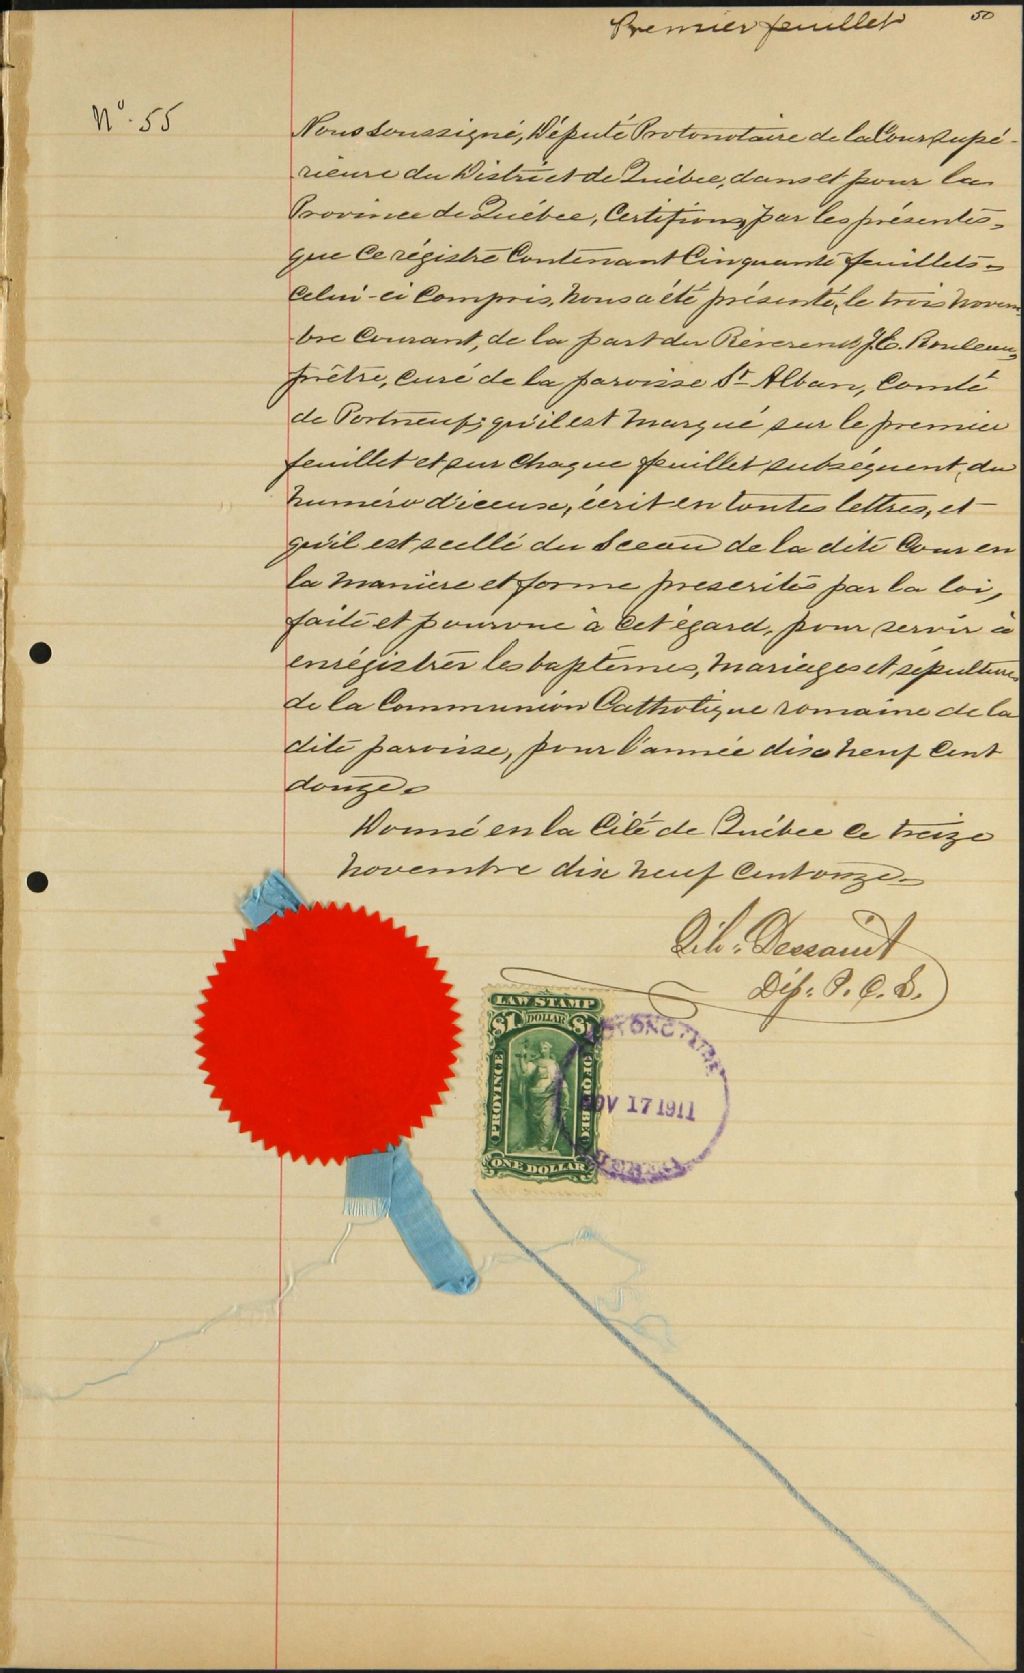 Premier feuillet
50
No. 55
Nous soussigné, Député Protonotaire de la Cour supé-
rieure du District de Québec, dans et pour la
Province de Québec, Certifions par les présentes
que ce régistre Contenant Cinquante feuillets
celui-ci Compris, nous a été présenté, le trois novem-
bre Courant, de la part du Réverend J.E. Rouleau,
prêtre, curé de la paroisse St Alban, Comté
de Portneuf; qu'il est marqué sur le premier
feuillet et sur chaque feuillet subséquent, du
numéro d'iceux, écrit en toutes lettres, et
qu'il est scellé du Sceau de la dite Cour en
la manière et forme prescrites par la loi,
faite et pourvue à cet égard, pour servir à
enrégistrer les baptêmes, mariages et sépultures
de la Communion Catholique romaine de la
dite paroisse, pour l'année dix neuf Cent
douze.
Donné en la Cité de Québec ce treize
novembre dix neuf Cent onze.
Dessaint
Dép. P. C. S.
LAW STAMP
$1 DOLLAR $1
PROVINCE
OF QUEBEC
ONE DOLLAR
PROTONOTAIRE
NOV 17 1911
QUEBEC